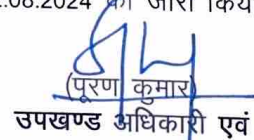 .08.2024 को जारी किय
(पूरण कुमार)
उपखण्ड अधिकारी एवं